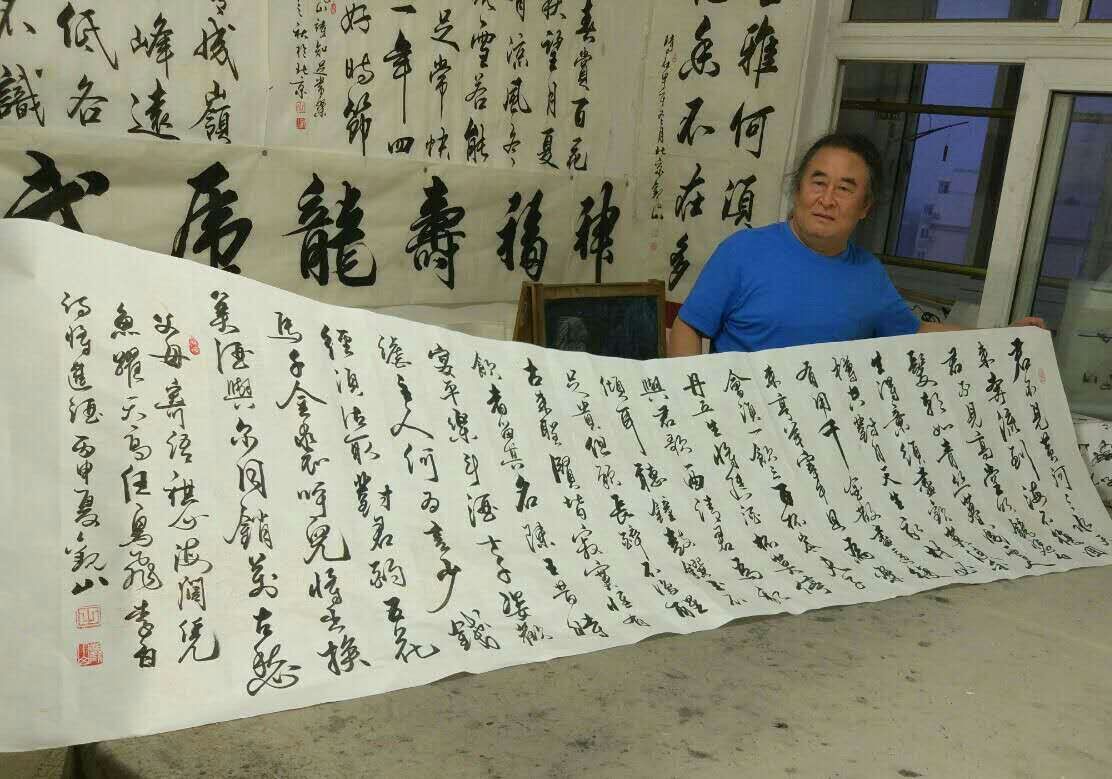 雅何須
香不在多
春賞百花
秋望月夏
有涼風冬
雪若能
足常快
一年四
好時節
成嶺
峰遠
低各
不識
神福壽龍虎
君不見黃河之水天上
來奔流到海不復回
君不見高堂明鏡悲白
髮朝如青絲暮成雪人
生得意須盡歡莫使金
樽空對月天生我材必
有用千金散盡還復
來烹羊宰牛且為樂
會須一飲三百杯岑夫子
丹丘生將進酒杯莫停
與君歌一曲請君為我
傾耳聽鐘鼓饌玉不
足貴但願長醉不復醒
古來聖賢皆寂寞惟有
飲者留其名陳王昔時
宴平樂斗酒十千恣歡
謔主人何為言少錢
徑須沽取對君酌五花
馬千金裘呼兒將出換
美酒與爾同銷萬古愁
父母寄語祺心海闊憑
魚躍天高任鳥飛李白
詩將進酒丙申夏觀山